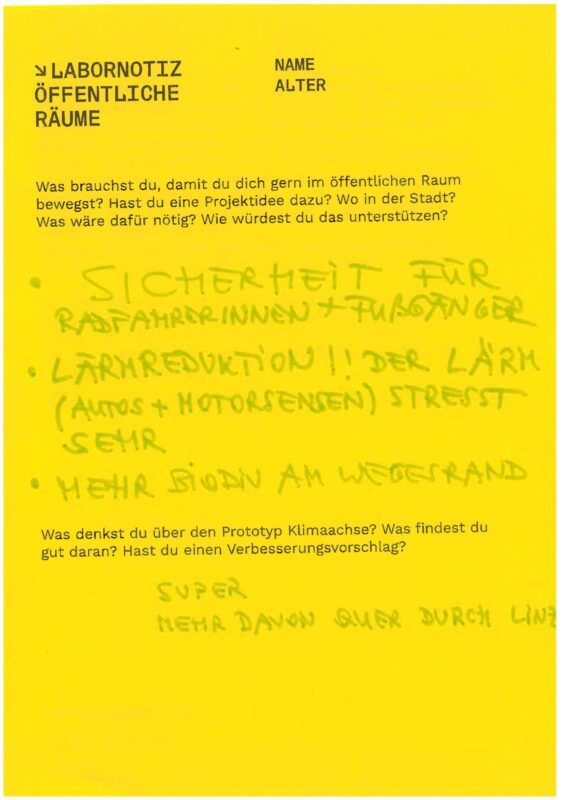 ↘ LABORNOTIZ
ÖFFENTLICHE
RÄUME
NAME
ALTER
Was brauchst du, damit du dich gern im öffentlichen Raum
bewegst? Hast du eine Projektidee dazu? Wo in der Stadt?
Was wäre dafür nötig? Wie würdest du das unterstützen?
• SICHERHEIT FÜR
RADFAHRERINNEN + FUßGÄNGER
• LÄRMREDUKTION!! DER LÄRM
(AUTOS + MOTORSENSEN) STRESST
SEHR
• MEHR BIODIV AM WEGESRAND
Was denkst du über den Prototyp Klimaachse? Was findest du
gut daran? Hast du einen Verbesserungsvorschlag?
SUPER
MEHR DAVON QUER DURCH LINZ